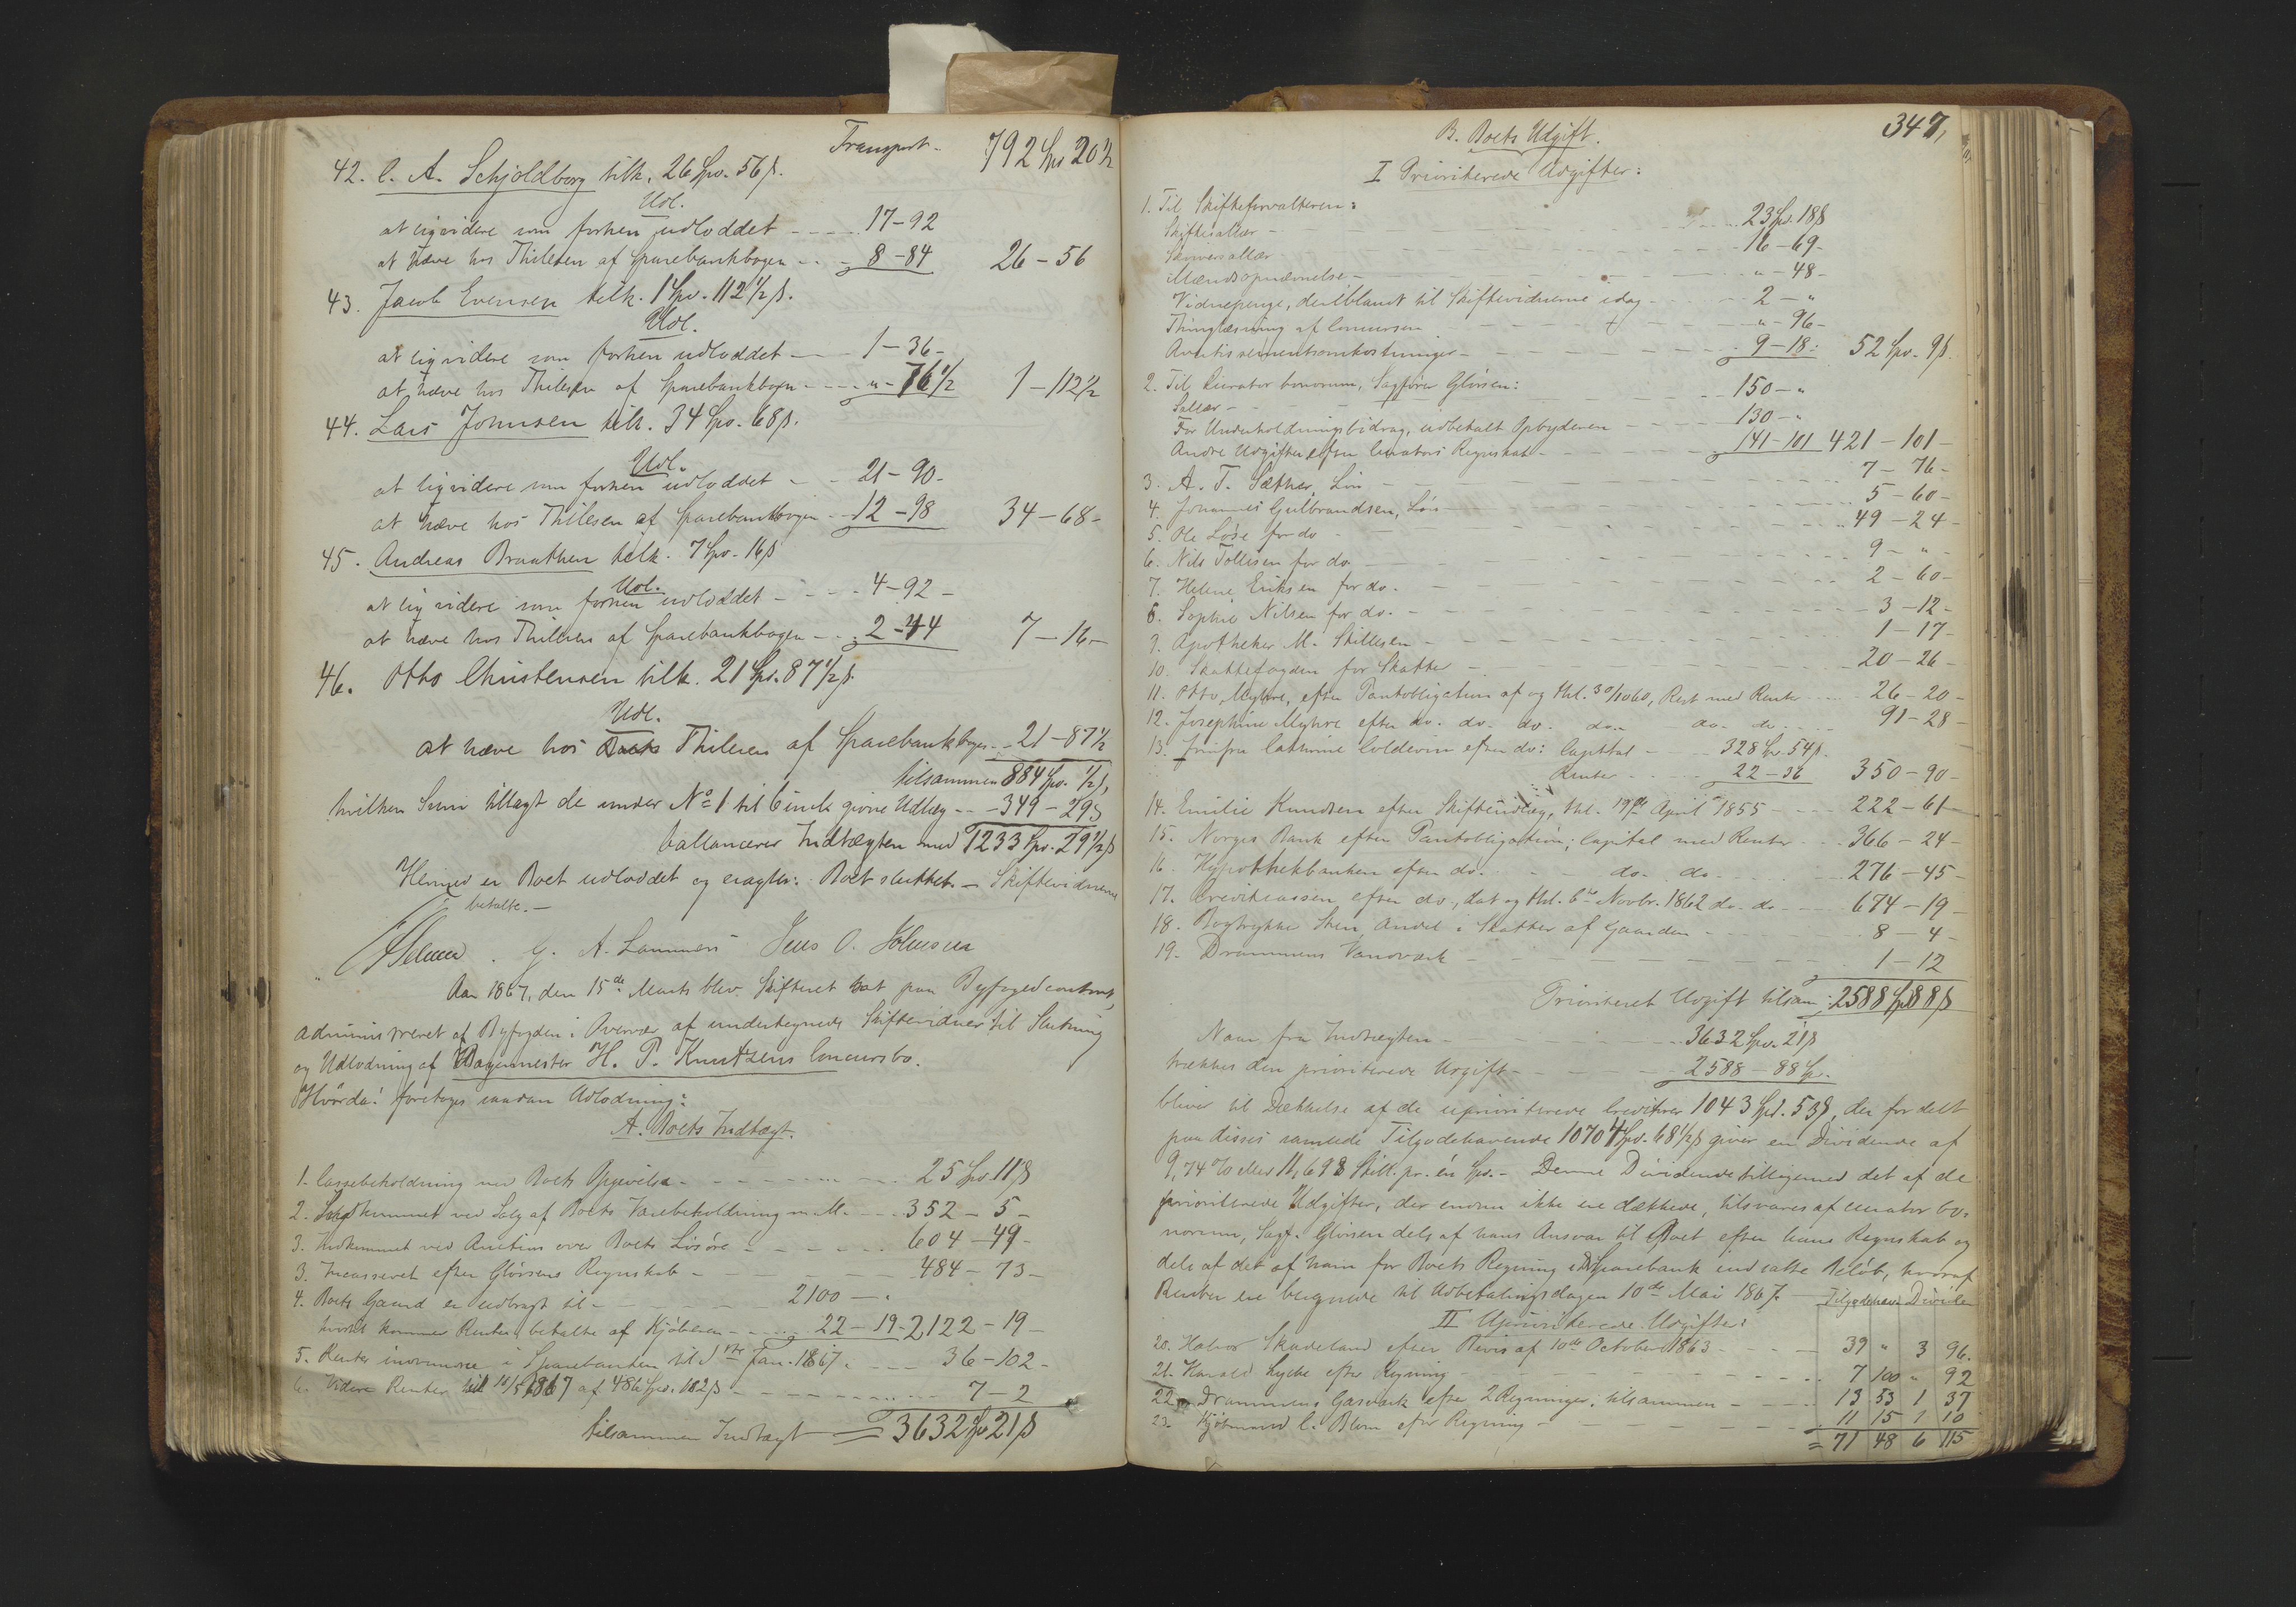 Transport - 792 Spd 20½
42. C. A. Schjoldborg tilk. 26 Spd. 56 ß.
Udl.
at liqvidere som forhen udloddet - - 17-92
at hæve hos Thilesen af Sparebankbogen - - 8-84 26-56
43. Jacob Evensen tilk. 1 Spd. 112½ ß.
Udl.
at liqvidere som forhen udloddet - - 1-36-
at hæve hos Thilesen af Sparebankbogen - - " - 76½ 1-112½
44. Lars Johnsen tilk. 34 Spd. 68 ß.
Udl.
at liqvidere som forhen udloddet - - 21-90-
at hæve hos Thilesen af Sparebankbogen - 12-98 34-68-
45. Andreas Braathen tilk. 7 Spd. 16 ß
Udl.
at liqvidere som forhen udloddet - - - 4-92-
at hæve hos Thilesen af Sparebankbogen - - 2-44 7-16-
46. Otto Christensen tilk. 21 Spd. 87½ ß.
Udl.
at hæve hos Thilesen af Sparebankbogen - - 21-87½
tilsammen 884 Spd. ½ ß,
hvilken Sum tillagt de under No 1 til 6 incl. givne Udlæg - - 349-29 ß
ballancerer Indtægten med 1233 Spd. 29½ ß
Hermed er Boet udloddet og eragtes: Boet sluttet. - Skiftevidnerne
betalte. -
G. A. Lammers Jens O. Johnsen
Aar 1867, den 15de Marts blev Skifteret sat paa Byfogedcontoret,
administreret af Byfogden i Overvær af undertegnede Skiftevidner til Slutning
og Udlodning af Vognmester H. P. Knutzens Concursbo.
Hvorda: foretoges saadan Udlodning:
A. Boets Indtægt.
1. Cassebeholdning ved Boets Opgivelse - - - 25 Spd 11 ß
2. Indkommet ved Salg af Boets Varebeholdning m. M. - - 352-5-
3. Indkommet ved Auction over Boets Løsøre - - - 604-49-
3. Incasseret efter Glørsens Regnskab - - - 484-73-
4. Boets Gaard er udbragt til - - - 2100-"
hvortil kommer Renter, betalte af Kjøberen - - 22-19- 2122-19-
5. Renter indvundne i Sparebanken til 1ste Jan. 1867. - - 36-102-
6. Videre Renter til 10/5 1867 af 486 Spd. 102 ß - - - 7-2
tilsammen Indtægt = 3632 Spd 21 ß
347,
B. Boets Udgift.
I Prioriterede Udgifter:
1. Til Skifteforvalteren:
Skiftesallær - - - 23 Spd. 18 ß
Skriversallær - - - 16-69-
Mændsopnævnelse - - - " - 48-
Vidnepenge, deriblandt til Skiftevidnerne idag - - 2-"
Thinglæsning af Concursen - - - " - 96-
Avertissementsomkostninger - - - 9-18- 52 Spd. 9 ß.
2. Til Curator bonorum, Sagfører Glørsen:
Sallær - - - 150-"
For Underholdningsbidrag, udbetalt Opbyderen - - 130-"
Andre Udgifter efter Curators Regnskab - - - 141-101 421-101-
3. A. T. Sæther, Løn - - - 7-76-
4. Johannes Gulbrandsen, Løn - - - 5-60-
5. Ole Løse for do - - - 49-24-
6. Nils Tollesen for do. - - - 9-"-
7. Helene Eriksen for do. - - - 2-60-
8. Sophie Nilsen for do. - - - 3-12-
9. Apotheker M. Skillesen - - - 1-17-
10. Skattefogden for Skatter - - - 20-26-
11. Otto Myhre, efter Pantobligation af og thl. 30/10 60, Rest med Renter - - 26-20-
12. Josephine Myhre efter do. do. do. do. do. do. - - 91-28-
13. Jomfru Cathrine Coldevin efter do: Capital - - 328 Spd. 54 ß.
Renter - - 22-36 350-90-
14. Emilie Knudsen efter Skifteudlæg, thl. 19de April 1855 - - 222-61-
15. Norges Bank efter Pantobligation; Capital med Renter - - 366-24-
16. Hypothekbanken efter do. do. do. - - 276-45-
17. Creditcassen efter do., dat og thl. 6te Novbr. 1862 do. do. - - 674-19-
18. Bogtrykker Steen, Andel i Skatter af Gaarden - - - 8-4-
19. Drammens Vandværk - - - 1-12
Prioriteret Udgift tilsam: 2588 Spd 88 ß
Naar fra Indtægten - - - 3632 Spd. 21 ß
trækkes den prioriterede Udgift - - - 2588-88 Sp.
bliver til Dækkelse af de uprioriterede Creditorer 1043 Spd. 53 ß, der fordelt
paa disses samlede Tilgodehavende 10704 Spd. 68½ ß giver en Dividende af
9,74 % eller 11,698 Skill. pr. én Spd. - Denne Dividende tilligemed det af de
prioriterede Udgifter, der endnu ikke ere dækkede, tilsvares af Curator bo-
norum, Sagf. Glørsen dels af hans Ansvar til Boet efter hans Regnskab og
dels af det af ham for Boets Regning i Sparebank indsatte Beløb, hvoraf
Renter ere beregnede til Udbetalingsdagen 10de Mai 1867. Tilgodehav. Dividen
II Uprioriterede Udgifter:
20. Halvor Skadeland efter Bevis af 10de October 1863 - - - 39 " 3 96.
21. Harald Lyche efter Regning - - - 7 100 " 92
22. Drammens Gasværk efter 2 Regninger, tilsammen - - - 13 53 1 37
23. Kjøbmand C. Blom efter Regning - - - 11 15 1 10
= 71 48 6 115